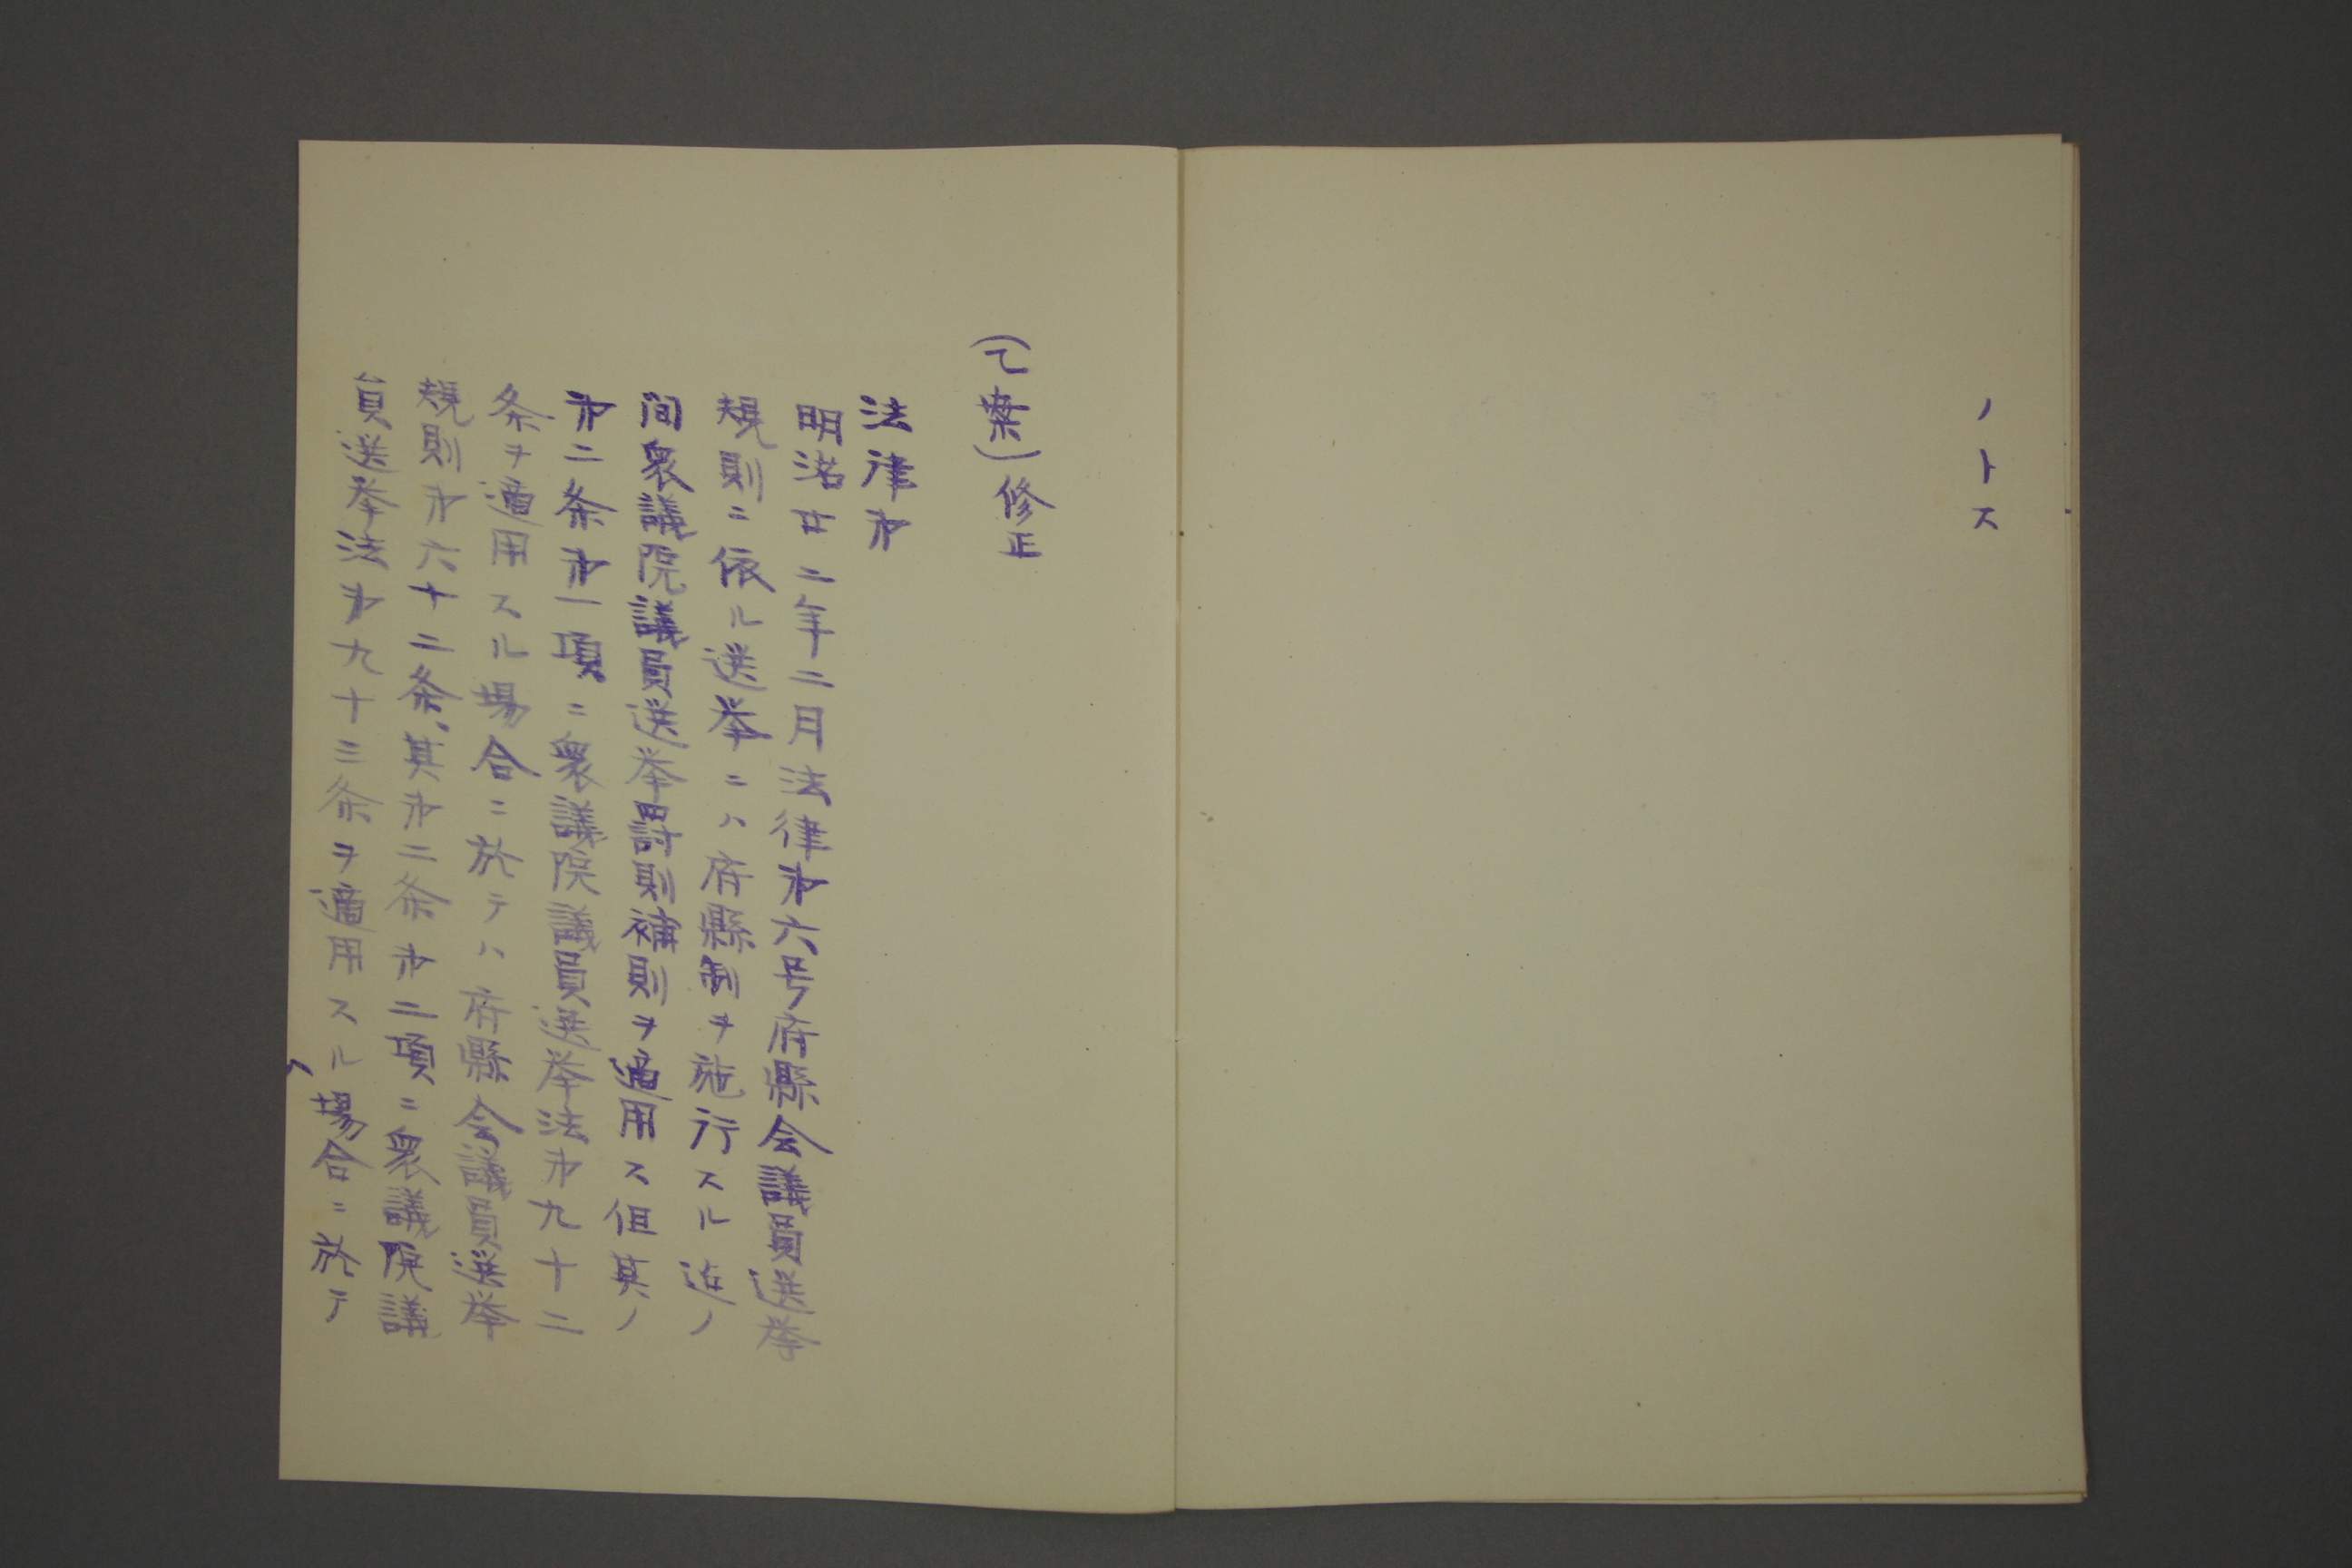 ノトス
(乙案)修正
法律㐧
明治廿二年二月法律㐧六号府縣会議員選挙
規則ニ依ル選挙ニハ府縣制ヲ施行スル迄ノ
間衆議院議員選挙罸則補則ヲ適用ス但其ノ
㐧二条㐧一項ニ衆議院議員選挙法㐧九十二
条ヲ適用スル場合ニ於テハ府縣会議員選挙
規則㐧六十二条、其㐧二条㐧二項ニ衆議院議
員選挙法㐧九十三条ヲ適用スル場合ニ於テ